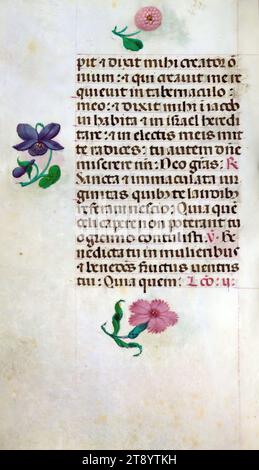 pit et dixit mihi creator o
nium: et qui creauit me re
quieuit in tabernaculo
meo: et dixit mihi i iacob
in habita et in israel heredi
tare: et in electis meis mit
te radices: tu autem dñe
miserere nr̄i: Deo grās: R
Sancta et immaculata uir
ginitas quibꝰ te laudibꝰ
referam nescio: Quia quē
celi capere non poterant tu
o gremio contulisti: V. Be
nedicta tu in mulieribus
et benedc̄s fructus uentris
tui: Quia quem: Lc̄o: ij:
alamy
Image ID: 2T8YTKH
www.alamy.com